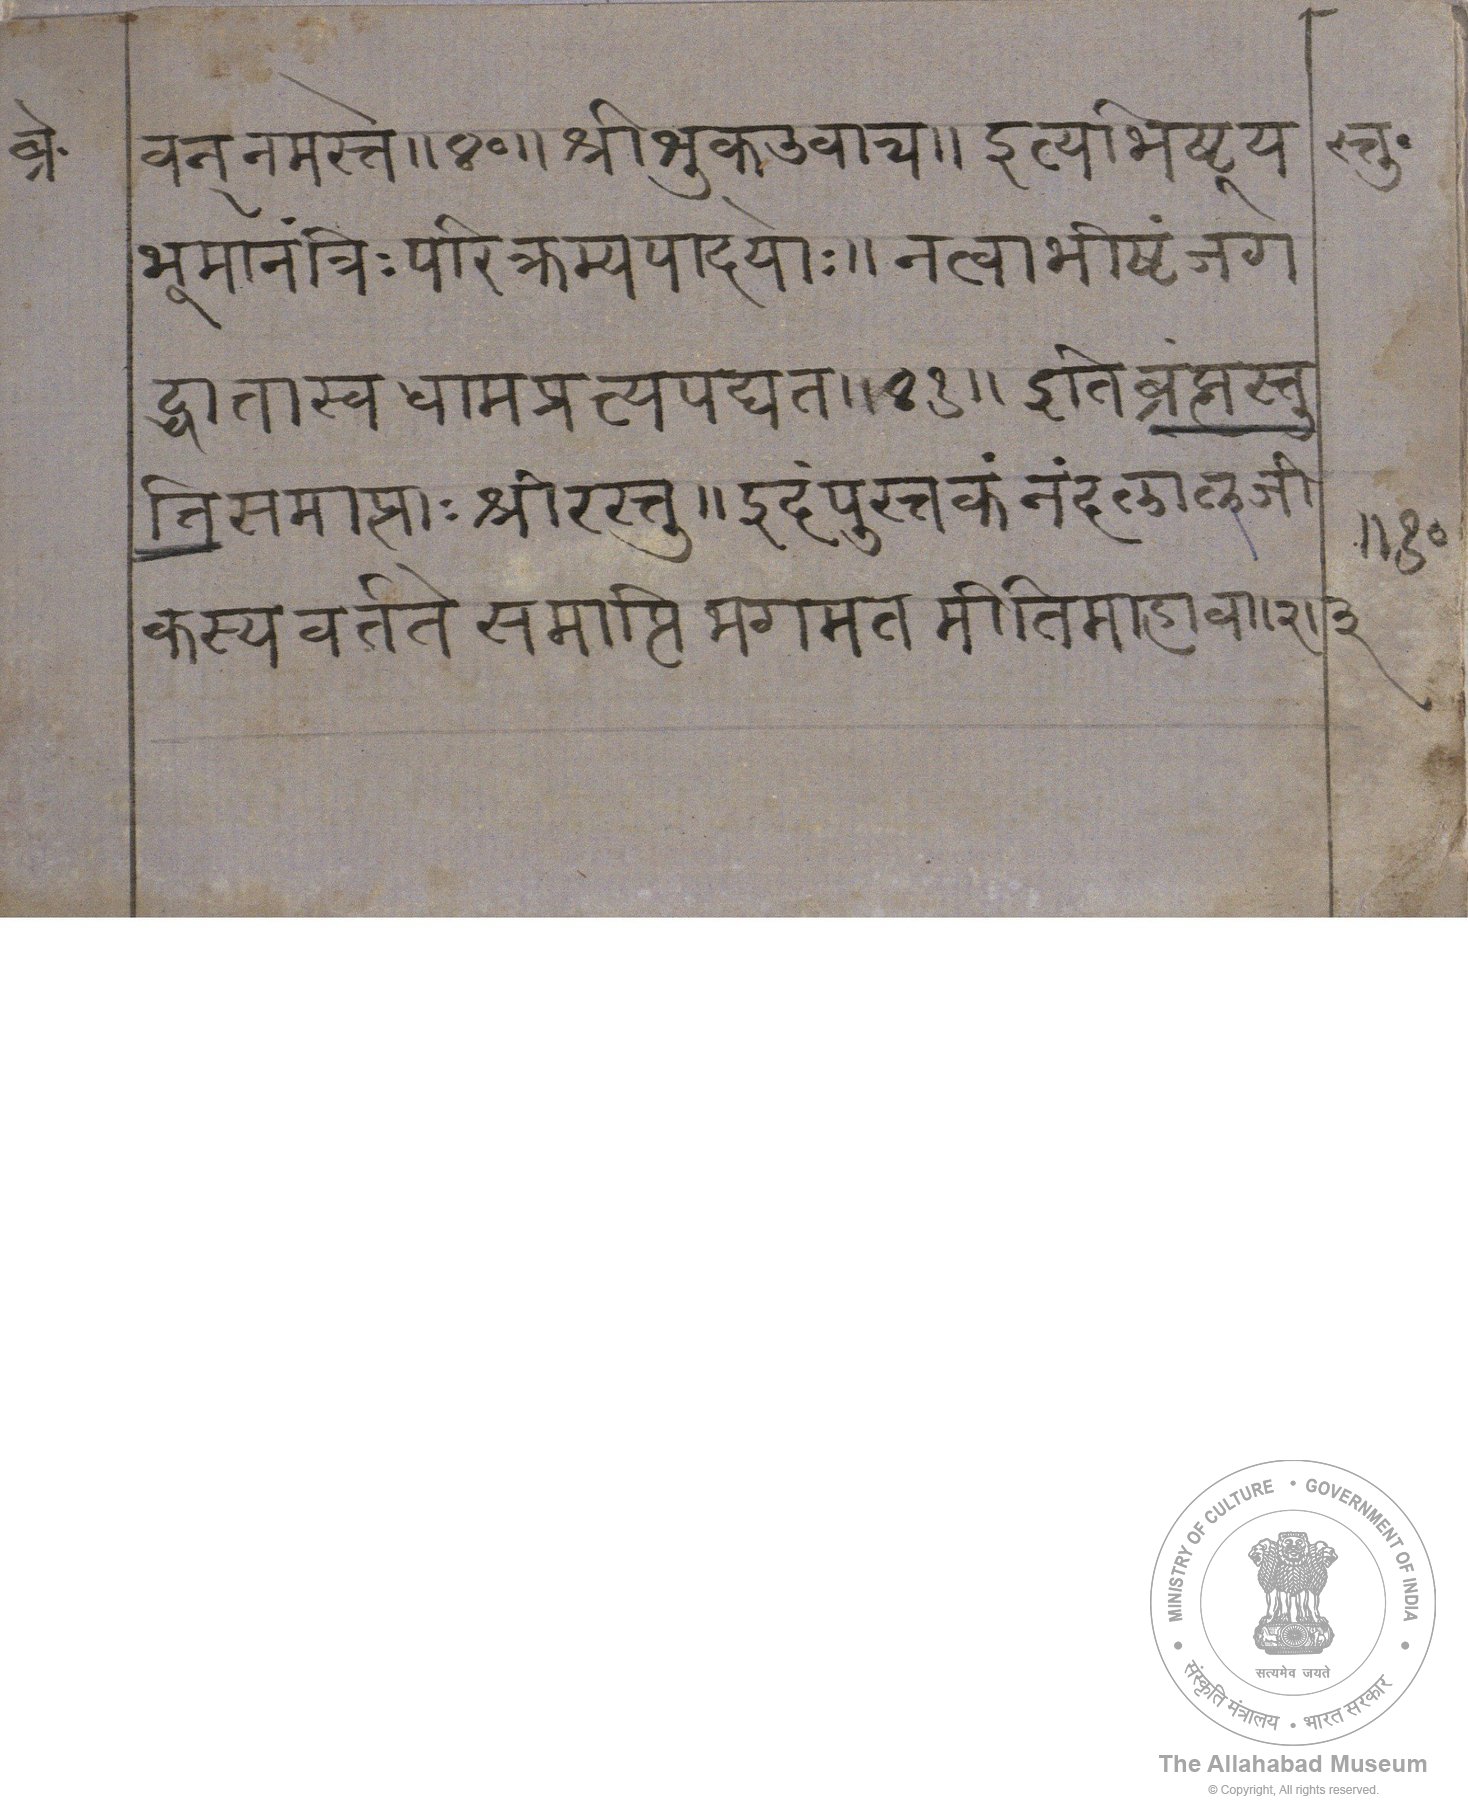 ब्रे॰ वन् नमस्ते॥४०॥ श्रीशुकउवाच॥ इत्यभिष्टूय स्तु॰
भूमानंत्रिःपरिक्रम्यपादयोः॥ नत्वाभीष्टंजग
द्धातास्वधामप्रत्यपद्यत॥४१॥ इतिब्रंह्मस्तु
तिसमाप्ताः श्रीरस्तु॥ इदंपुस्तकं नंदलालजी
॥१०
कस्य वर्त्तते समाप्ति मगमत
MINISTRY OF CULTURE • GOVERNMENT OF INDIA
सत्यमेव जयते
संस्कृति मंत्रालय • भारत सरकार
The Allahabad Museum
© Copyright, All rights reserved.